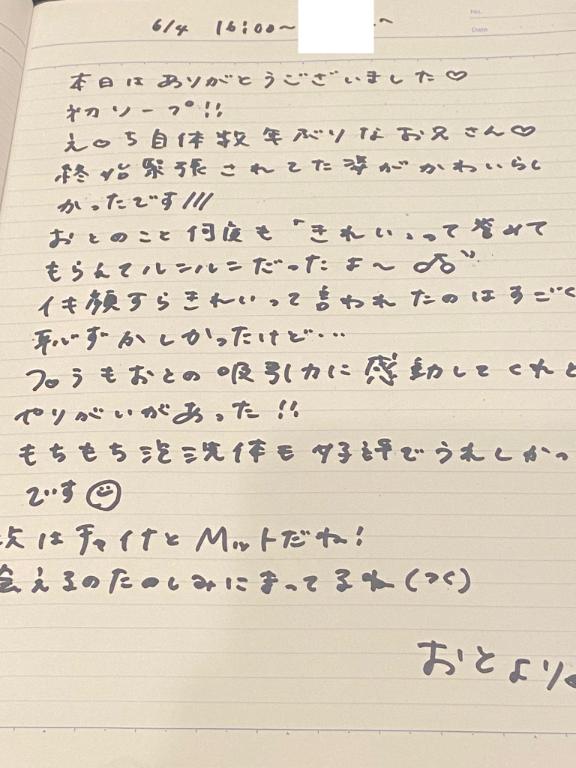 No.
Date
6/4 16:00〜 〜
本日はありがとうございました♡
初ソープ!!
え○ち自体数年ぶりなお兄さん♡
終始緊張されてた姿がかわいらし
かったです///
おとのこと何度も「きれい」って誉めて
もらえてルンルンだったよ〜
イキ顔すらきれいって言われたのはすごく
恥ずかしかったけど…
フェラもおとの吸引力に感動してくれて
やりがいがあった!!
もちもち泡洗体も好評でうれしかっ
です
次はチャイナとMットだね!
会えるのたのしみにまってるね(つく)
おとより